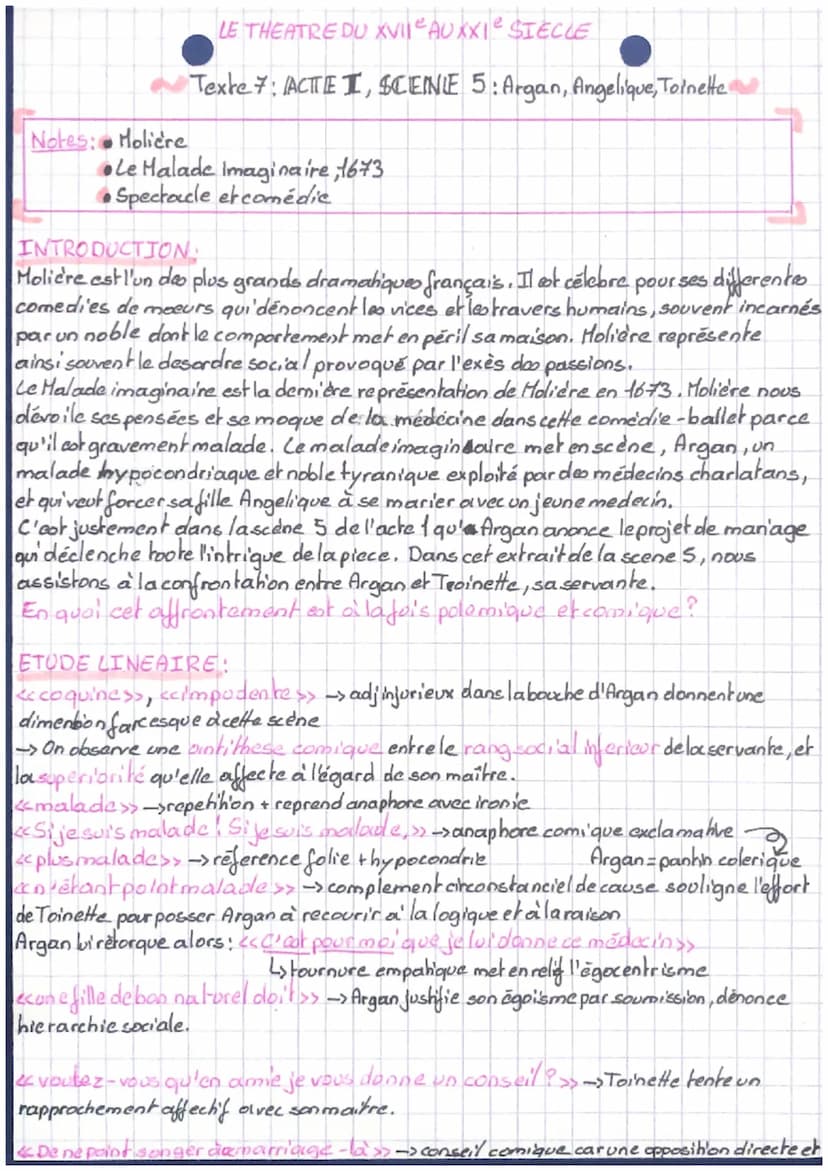 LE THEATRE DU XVIIe AU XXIe SIECLE
Texte 7: ACTE I, SCENE 5: Argan, Angelique, Toinette
Notes: • Molière
• Le Malade Imaginaire, 1673
• Spectacle et comédie
INTRODUCTION:
Molière est l'un des plus grands dramatiques français. Il est célèbre pour ses differentes
comedies de moeurs qui dénoncent les vices et les travers humains, souvent incarnés
par un noble dont le comportement met en péril sa maison. Molière représente
ainsi souvent le desordre social provoqué par l'exès des passions.
Le Malade imaginaire est la dernière représentation de Molière en 1673. Molière nous
dévoile ses pensées et se moque de la médecine dans cette comédie-ballet parce
qu'il est gravement malade. Le malade imaginaire met en scène, Argan, un
malade hypocondriaque et noble tyranique exploité par des médecins charlatans,
et qui veut forcer sa fille Angelique à se marier avec un jeune medecin.
C'est justement dans la scène 5 de l'acte 1 qu'Argan anonce le projet de mariage
qui déclenche toute l'intrigue de la piece. Dans cet extrait de la scene 5, nous
assistons à la confrontation entre Argan et Troinette, sa servante.
En quoi cet affrontement est à la fois polemique et comique?
ETUDE LINEAIRE:
<<coquine>>, <<impudente>> → adj injurieux dans la bouche d'Argan donnent une
dimention farcesque à cette scène
→ On observe une antithèse comique entre le rang social inferieur de la servante, et
la supériorité qu'elle affecte à l'égard de son maître.
<<malade>> → repetition + reprend anaphore avec ironie
<<Si je suis malade! Si je suis malade,>> → anaphore comique exclamative
<<plus malade>> → réference folie + hypocondrie Argan = pantin colerique
<<n'étant point malade>> → complement circonstanciel de cause souligne l'effort
de Toinette pour posser Argan à recourir à la logique et à la raison
Argan lui rétorque alors: <<C'est pour moi que je lui donne ce médecin>>
↳ tournure empatique met en relif l'égocentrisme
<<une fille de bon naturel doit>> → Argan justifie son égoisme par soumission, dénonce
hierarchie sociale.
<<voulez-vous qu'en amie je vous donne un conseil?>> → Toinette tente un
rapprochement affectif avec son maître.
<<De ne point songer à ce marriage-là>> → conseil comique car une opposition directe et